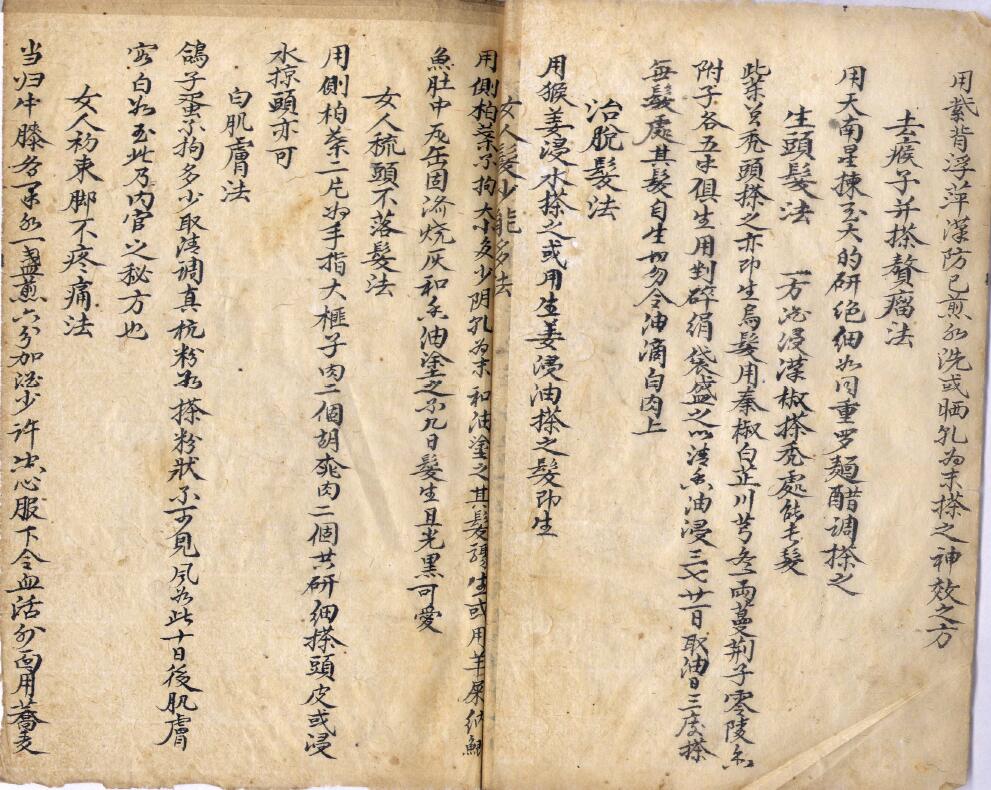 用紫背浮萍漢防已煎水洗或晒乳為末搽之神效之方
去瘊子并搽贅瘤法
用天南星揀至大的研絶細如同重罗麺醋调搽之
生頭髮法 一方酒浸漢椒搽秃處能毛髮
柴 秃頭搽之亦即生烏髮用秦椒白芷川芎各一両蔓荆子零陵
附子各五 俱生用剉碎絹袋盛之以清香油浸三七廿一日取油日三度搽
每髮處其髮自生切勿令油滴白肉上
治脫髮法
用猴姜浸水搽之或用生姜浸油搽之髮即生
女人髮少能多法
用側柏葉不拘大小多少阴乳為末和油塗之其髮 生或用羊屎納鯽
魚肚中瓦缶固济烧灰和香油塗之不九日髮生且光黑可愛
女人梳頭不落髮法
用側柏葉二片如手指大榧子肉二個胡桃肉二個共研細搽頭皮或浸
水掠頭亦可
白肌膚法
鴿子蛋不拘多少取清调真杭粉如搽粉狀不可見風如此十日後肌膚
容白如玉此乃内官之秘方也
女人初束脚不疼痛法
当归牛膝各 水一盞煎六分加酒少許 心服下令血活外面用蕎麦